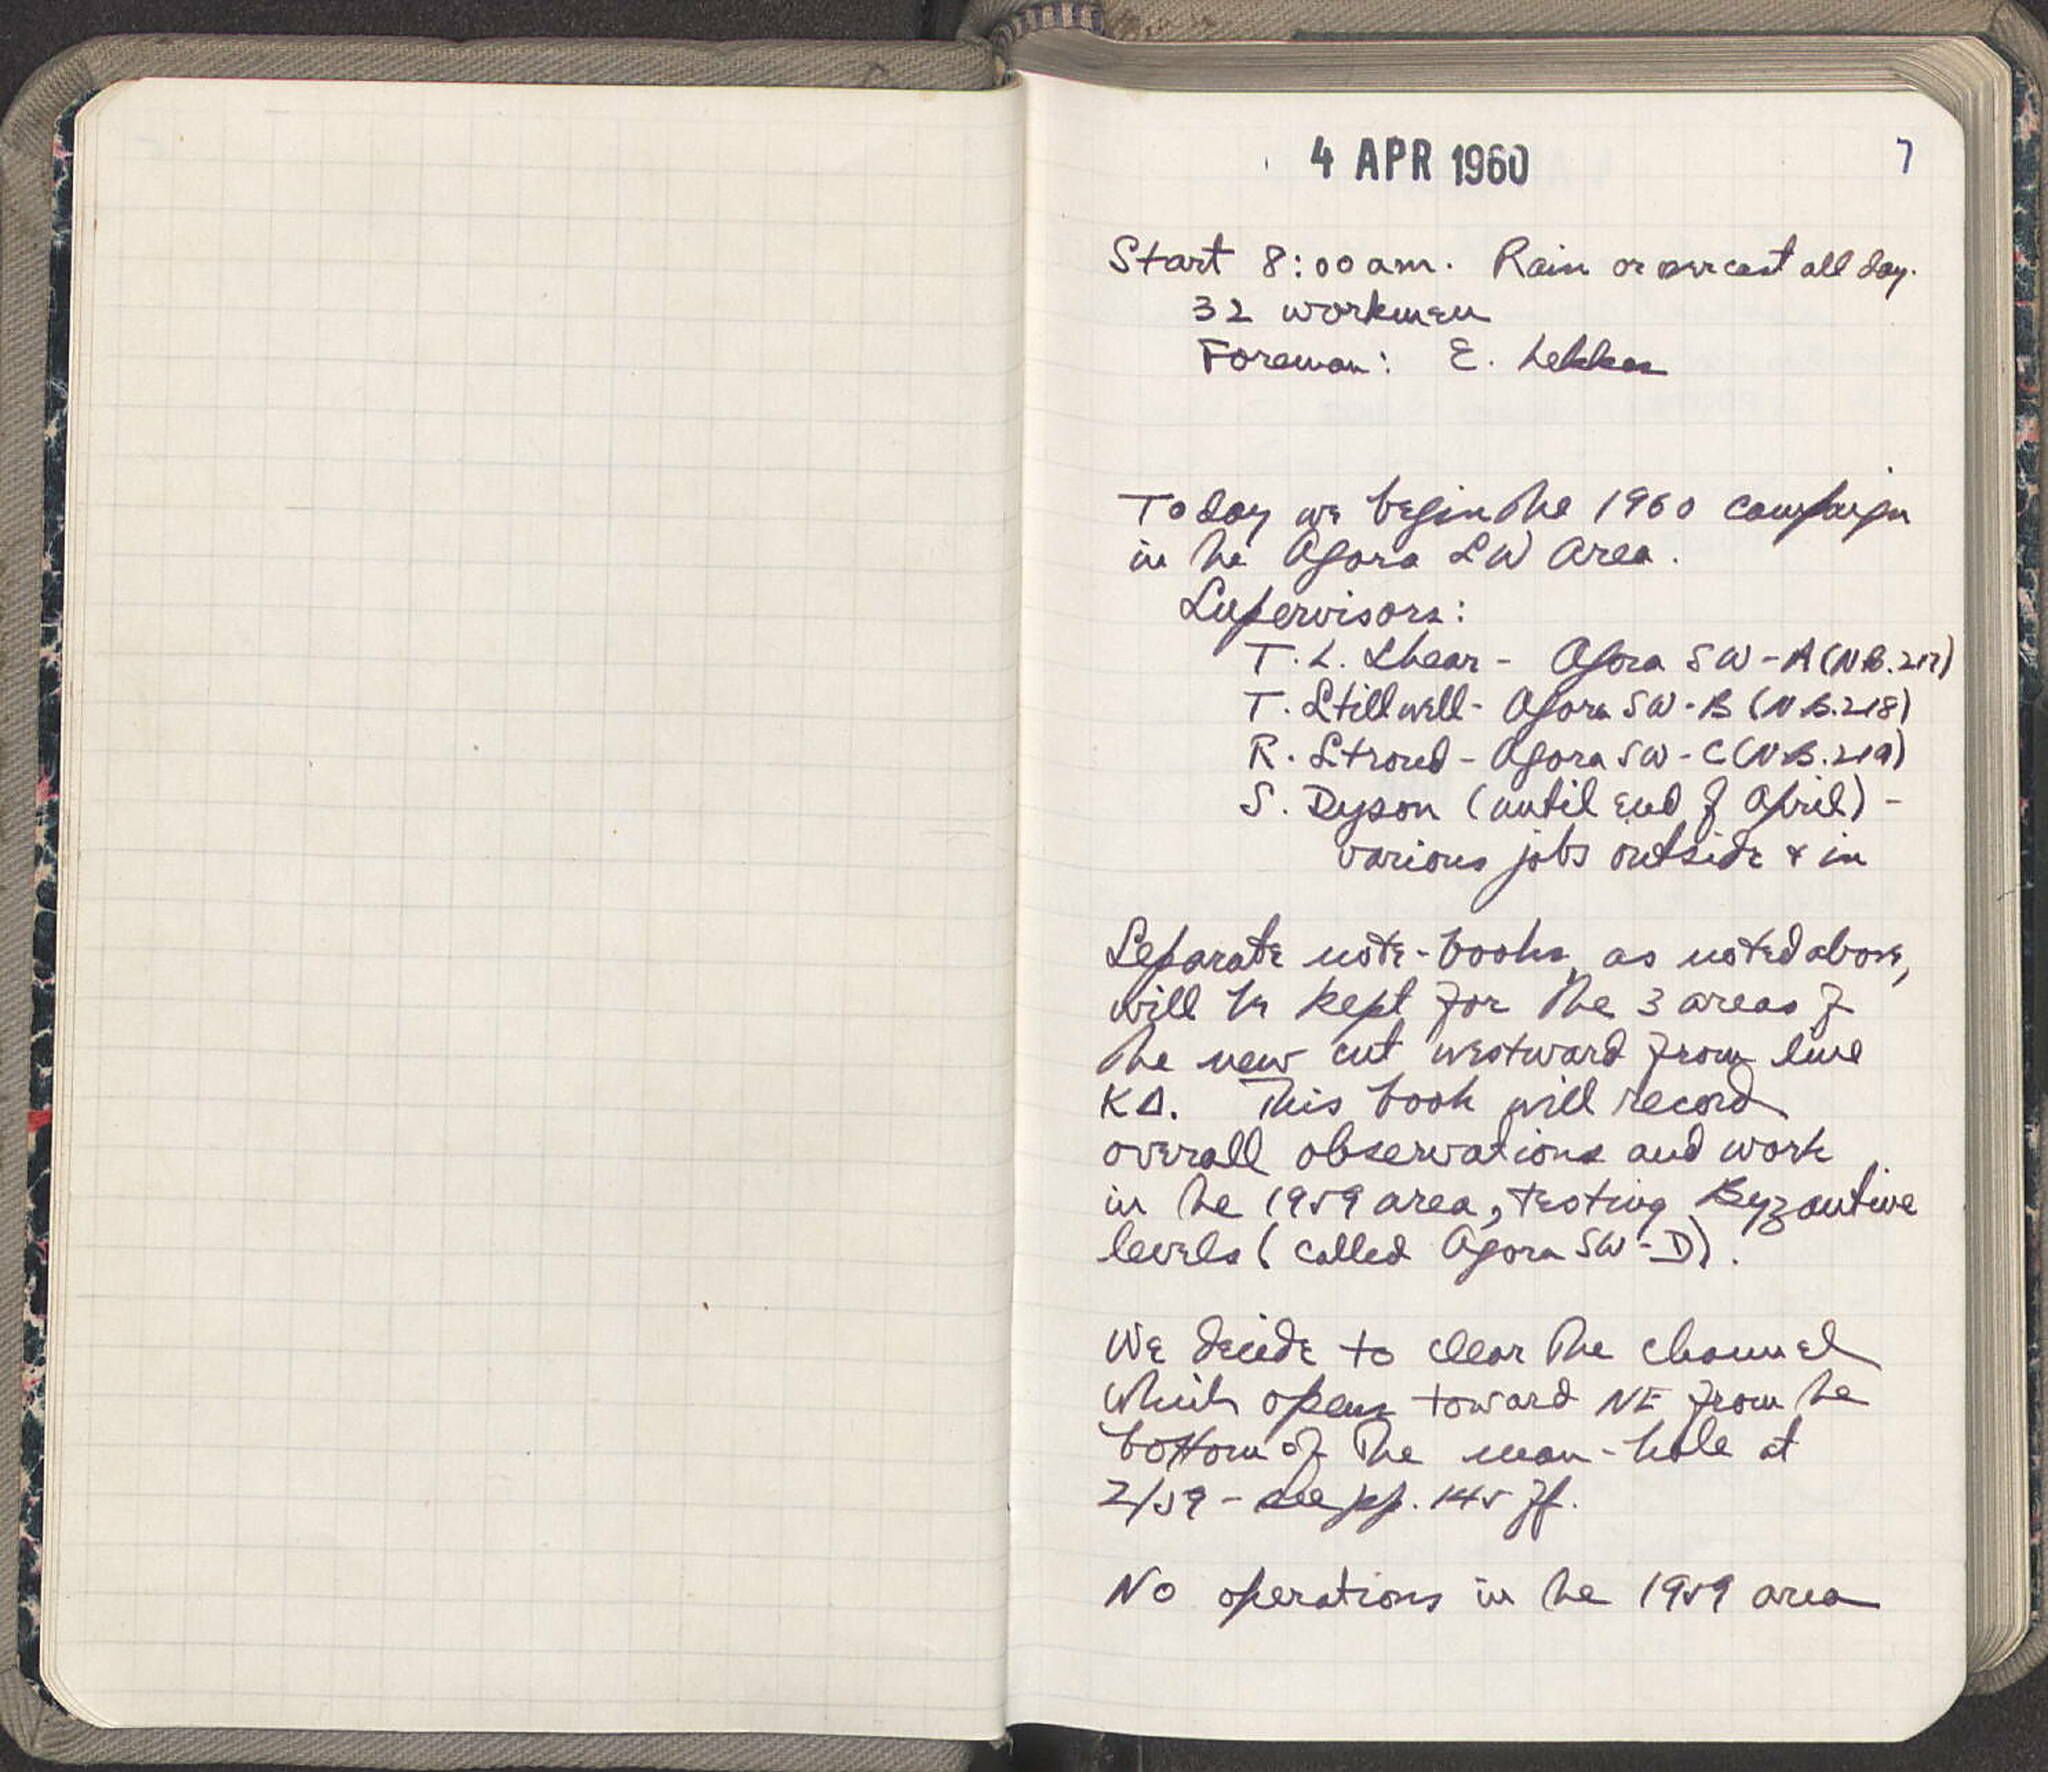 4 APR 1960
7
Start 8:00 am. Rain or overcast all day.
32 workmen
Foreman: E. Lekkas
Today we begin the 1960 campaign
in the Agora SW Area.
Supervisors:
T. L. Shear - Agora SW-A (NB. 217)
T. Stillwell - Agora SW-B (N.B. 218)
R. Stroud - Agora SW-C (NB. 219)
S. Dyson (until end of April) -
various jobs outside + in
Separate note-books, as noted above,
will be kept for the 3 areas of
the new cut westward from line
ΚΔ. This book will record
overall observations and work
in the 1959 area, testing Byzantine
levels (called Agora SW-D).
We decide to clear the channel
which opens toward NE from the
bottom of the man-hole at
2/59 - see pp. 145 ff.
No operations in the 1959 area